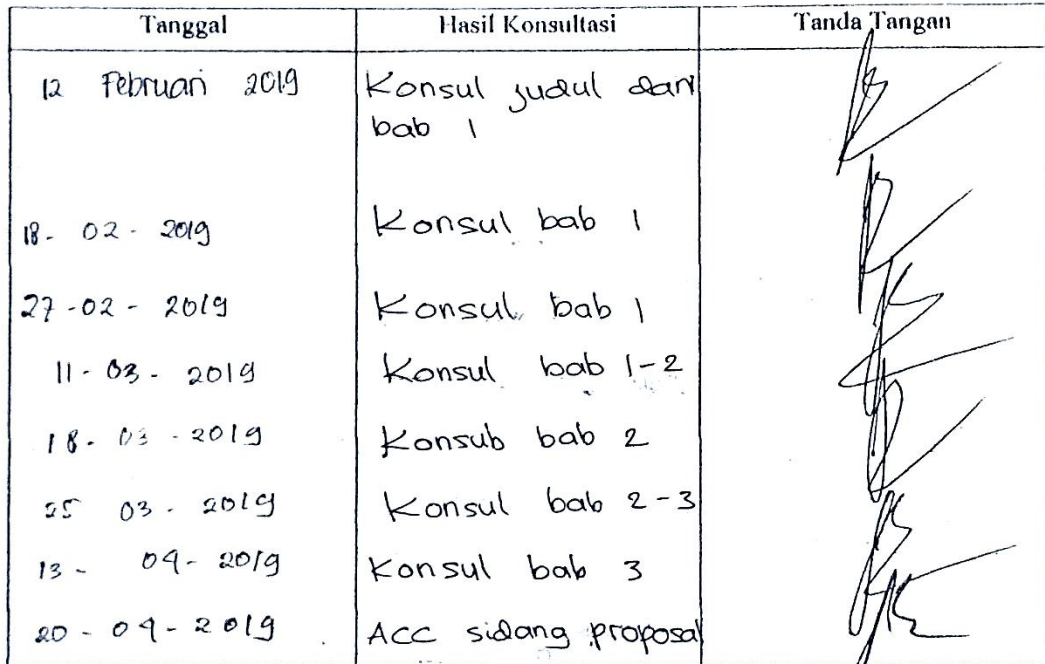 Tanggal Hasil Konsultasi Tanda Tangan
12 Februari 2019 Konsul judul dan
bab 1
18- 02- 2019 Konsul bab 1
27-02-2019 Konsul bab 1
11-03-2019 Konsul bab 1-2
18-03-2019 Konsub bab 2
25 03-2019 Konsul bab 2-3
13- 04-2019 Konsul bab 3
20-04-2019 ACC sidang proposal